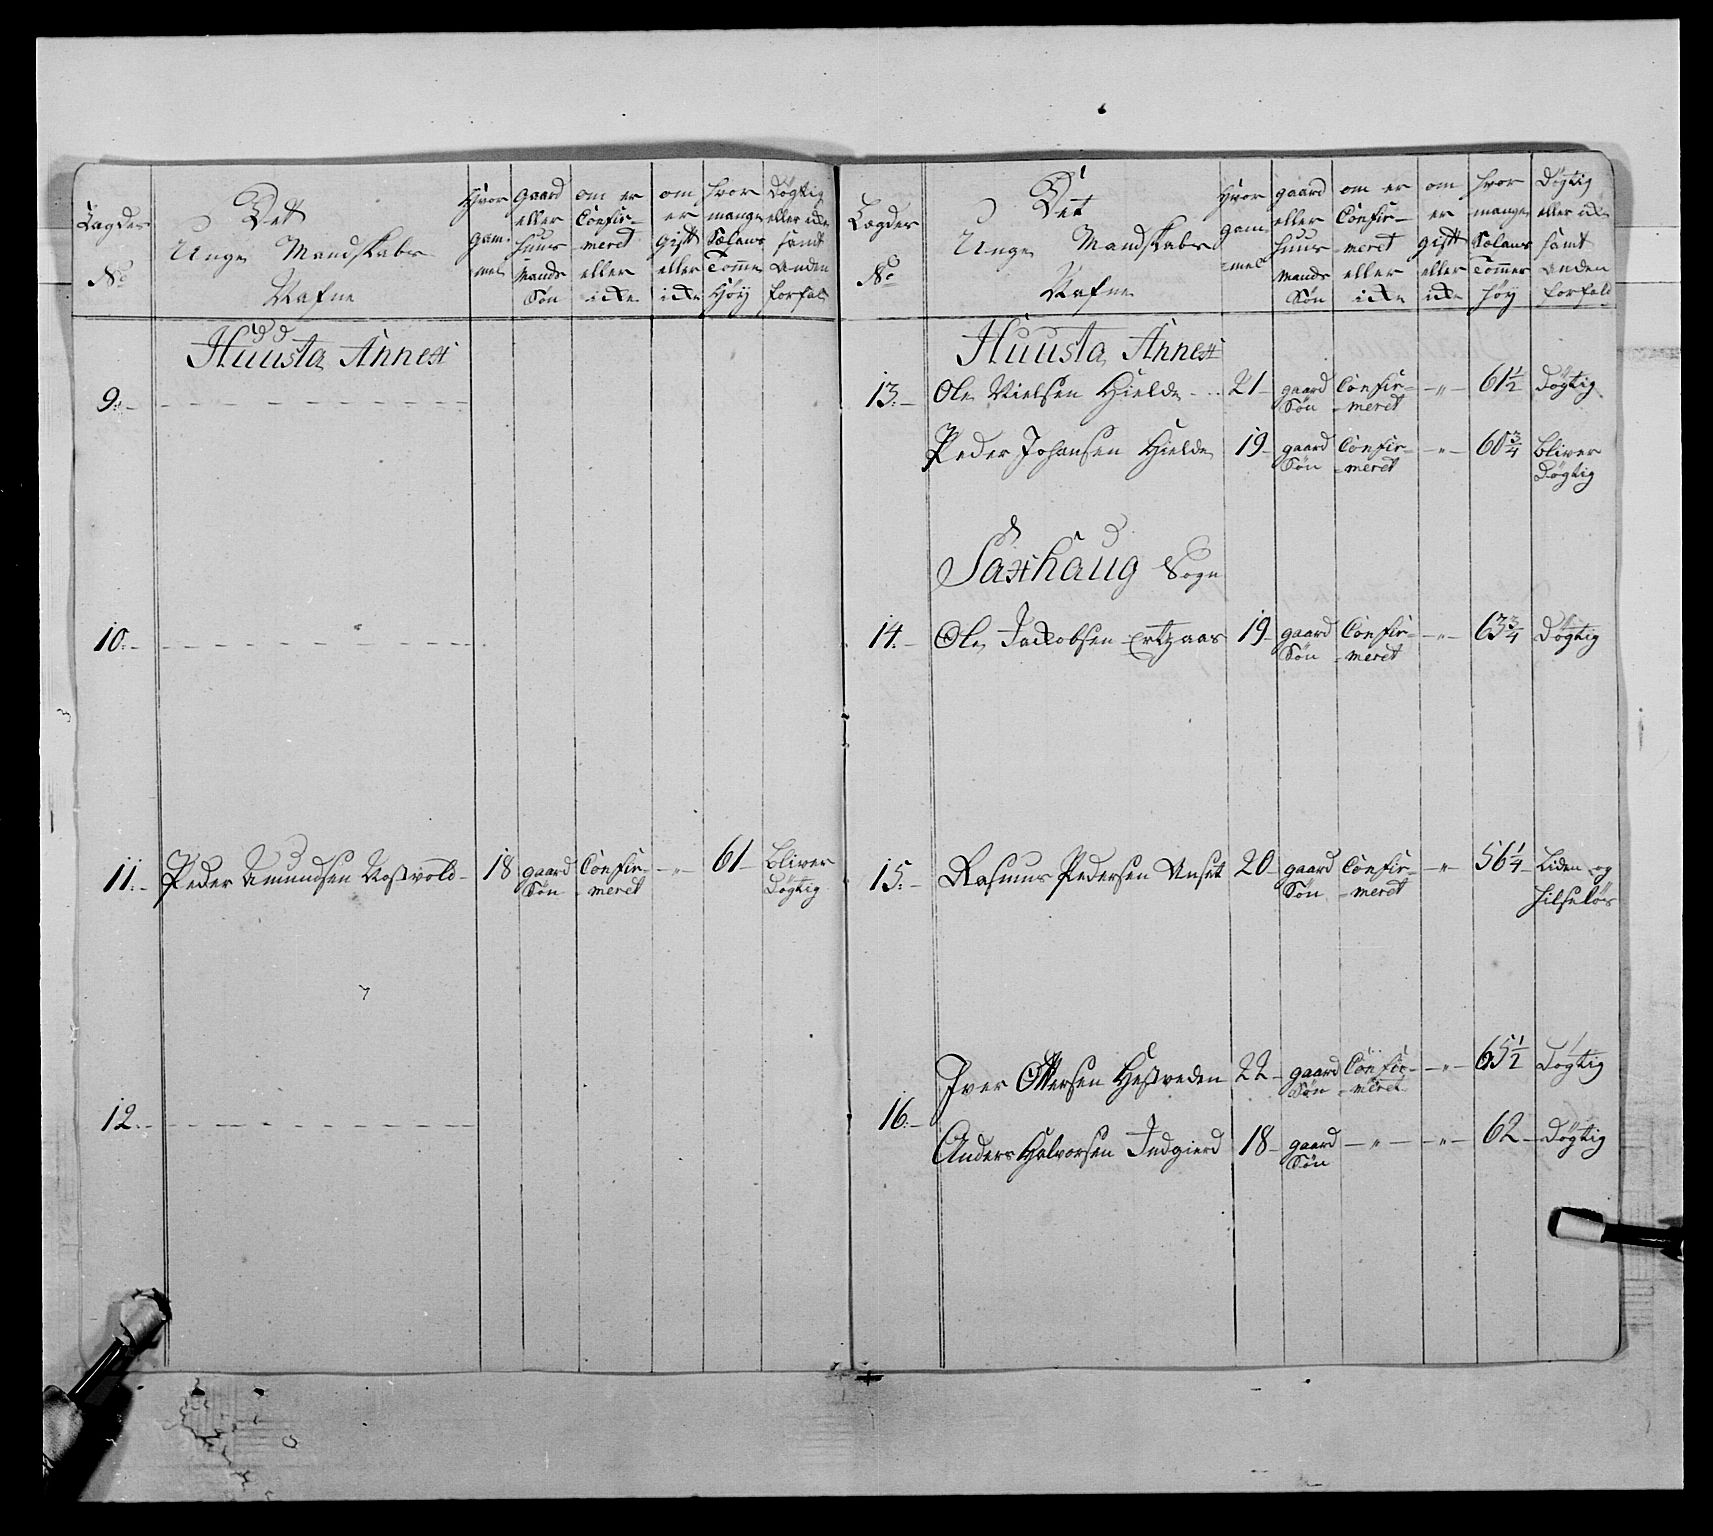 Lægdes No
Det Unge Mandskabs Nafne
Hvor gam-mel
Gaard eller Huus Mands Søn
om er Confir-meret eller icke
om er gift eller icke
hvor mange Sælans Tomme Høy
Døgtig eller icke samt Anden forfal
Huusta Annex
9.
10.
11. Peder Amundsen Nossvold 18 gaard Søn Confir-meret - " - 61 bliver Døgtig
12.
Lægdes No
Det Unge Mandskabs Nafne
Hvor gam-mel
gaard eller Huus Mands Søn
om er Confir-meret eller icke
om er gift eller icke
hvor mange Sælans Tommer høy
Døgtig eller icke samt Anden forfald
Huusta Annex
13. Ole Nielsen Hielde 21 gaard Søn Confir-meret - " - 61 1/2 Døgtig
Peder Johansen Hielde 19 gaard Søn Confir-meret - " - 60 3/4 bliver Døgtig
Saxhaug Sogn
14. Ole Jackobsen Ertzaas 19 gaard Søn Confir-meret - " - 63 3/4 Døgtig
15. Rasmus Pedersen Unset 20 gaard Søn Confir-meret - " - 56 1/4 Liden og hilseløs
Iver Ottersen Hestveden 22 gaard Søn Confir-meret - " - 65 1/2 Døgtig
16.
Anders Halvorsen Indgierd 18 gaard Søn - " - - " - 62 Døgtig